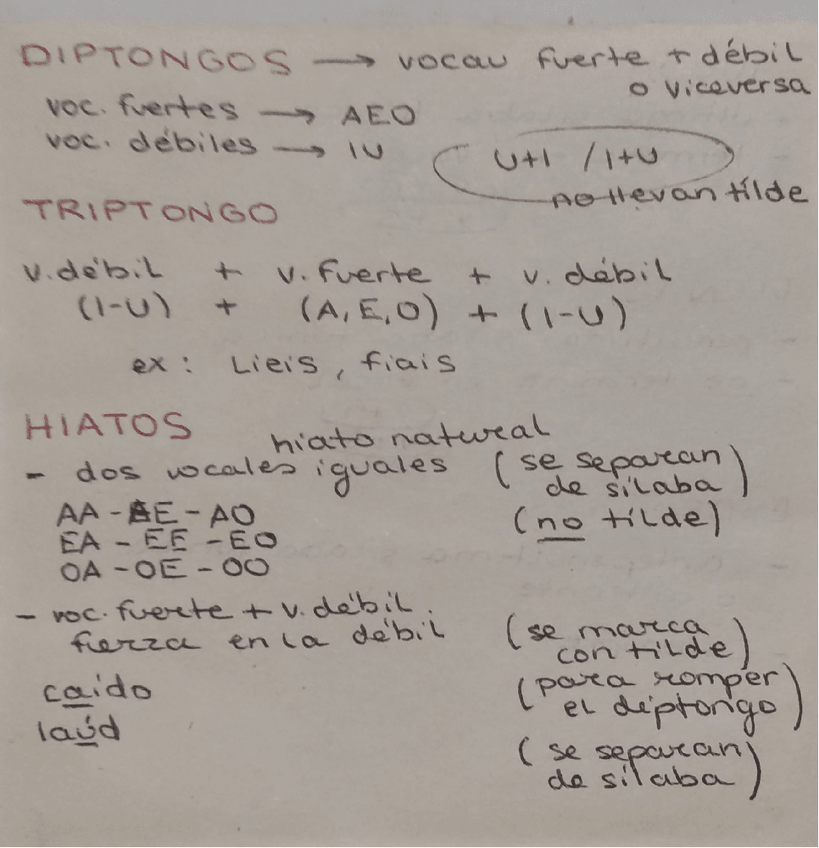 DIPTONGOS → vocal fuerte + débil
o viceversa
voc. fuertes → AEO
voc. débiles → IU
U+I / I+U
no llevan tilde
TRIPTONGO
v. débil + v. fuerte + v. débil
(I-U) + (A, E, O) + (I-U)
ex: Lieis, fiais
HIATOS
hiato natural
- dos vocales iguales (se separan
de sílaba)
AA - AE - AO (no tilde)
EA - EE - EO
OA - OE - OO
- voc. fuerte + v. débil.
fuerza en la débil (se marca
con tilde)
caído (para romper
el diptongo)
laúd
(se separan
de sílaba)